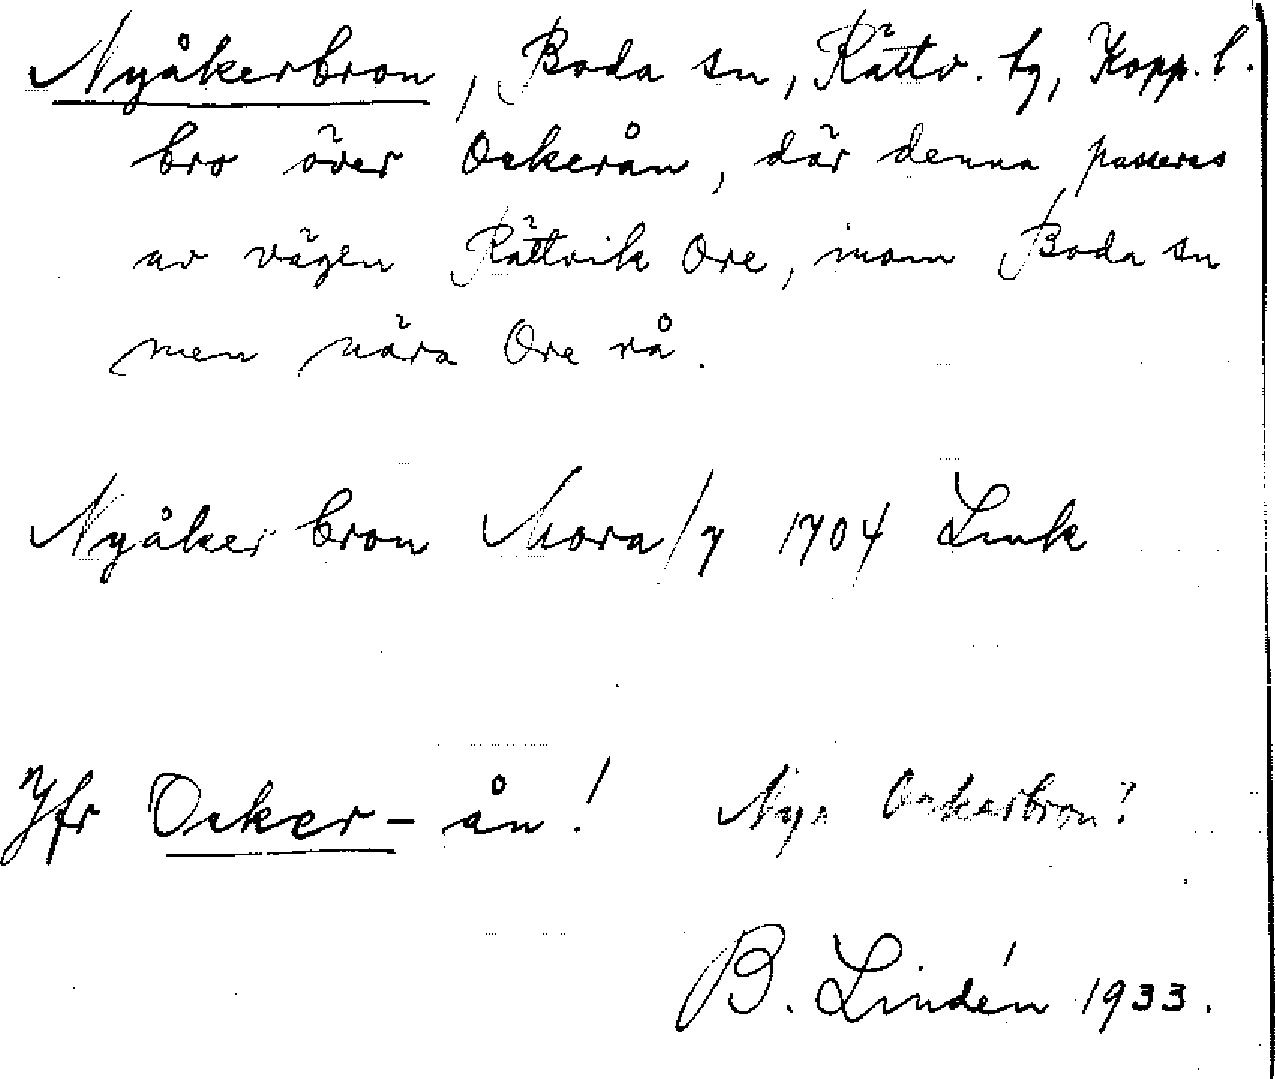 Nyåkerbron, Boda sn, Rättv. tg, Kopp. l.
bro över Oskerån, där denna passeras
av vägen Rättvik Ore, inom Boda sn
men nära Ore rå.
Nyåker bron Mora/7 1704 Lmk
Jfr Osker-ån! Nya Oskerbron?
B. Lindén 1933.